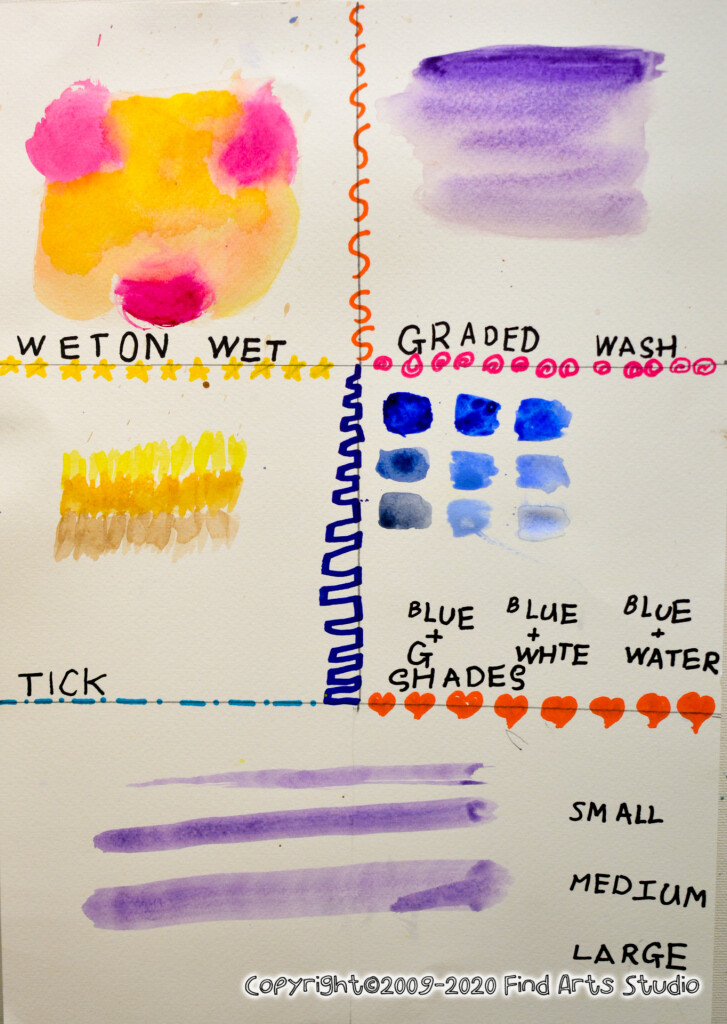 WET ON WET
GRADED WASH
TICK
BLUE + G
BLUE + WHTE
BLUE + WATER
SHADES
SMALL
MEDIUM
LARGE
Copyright©2009-2020 Find Arts Studio